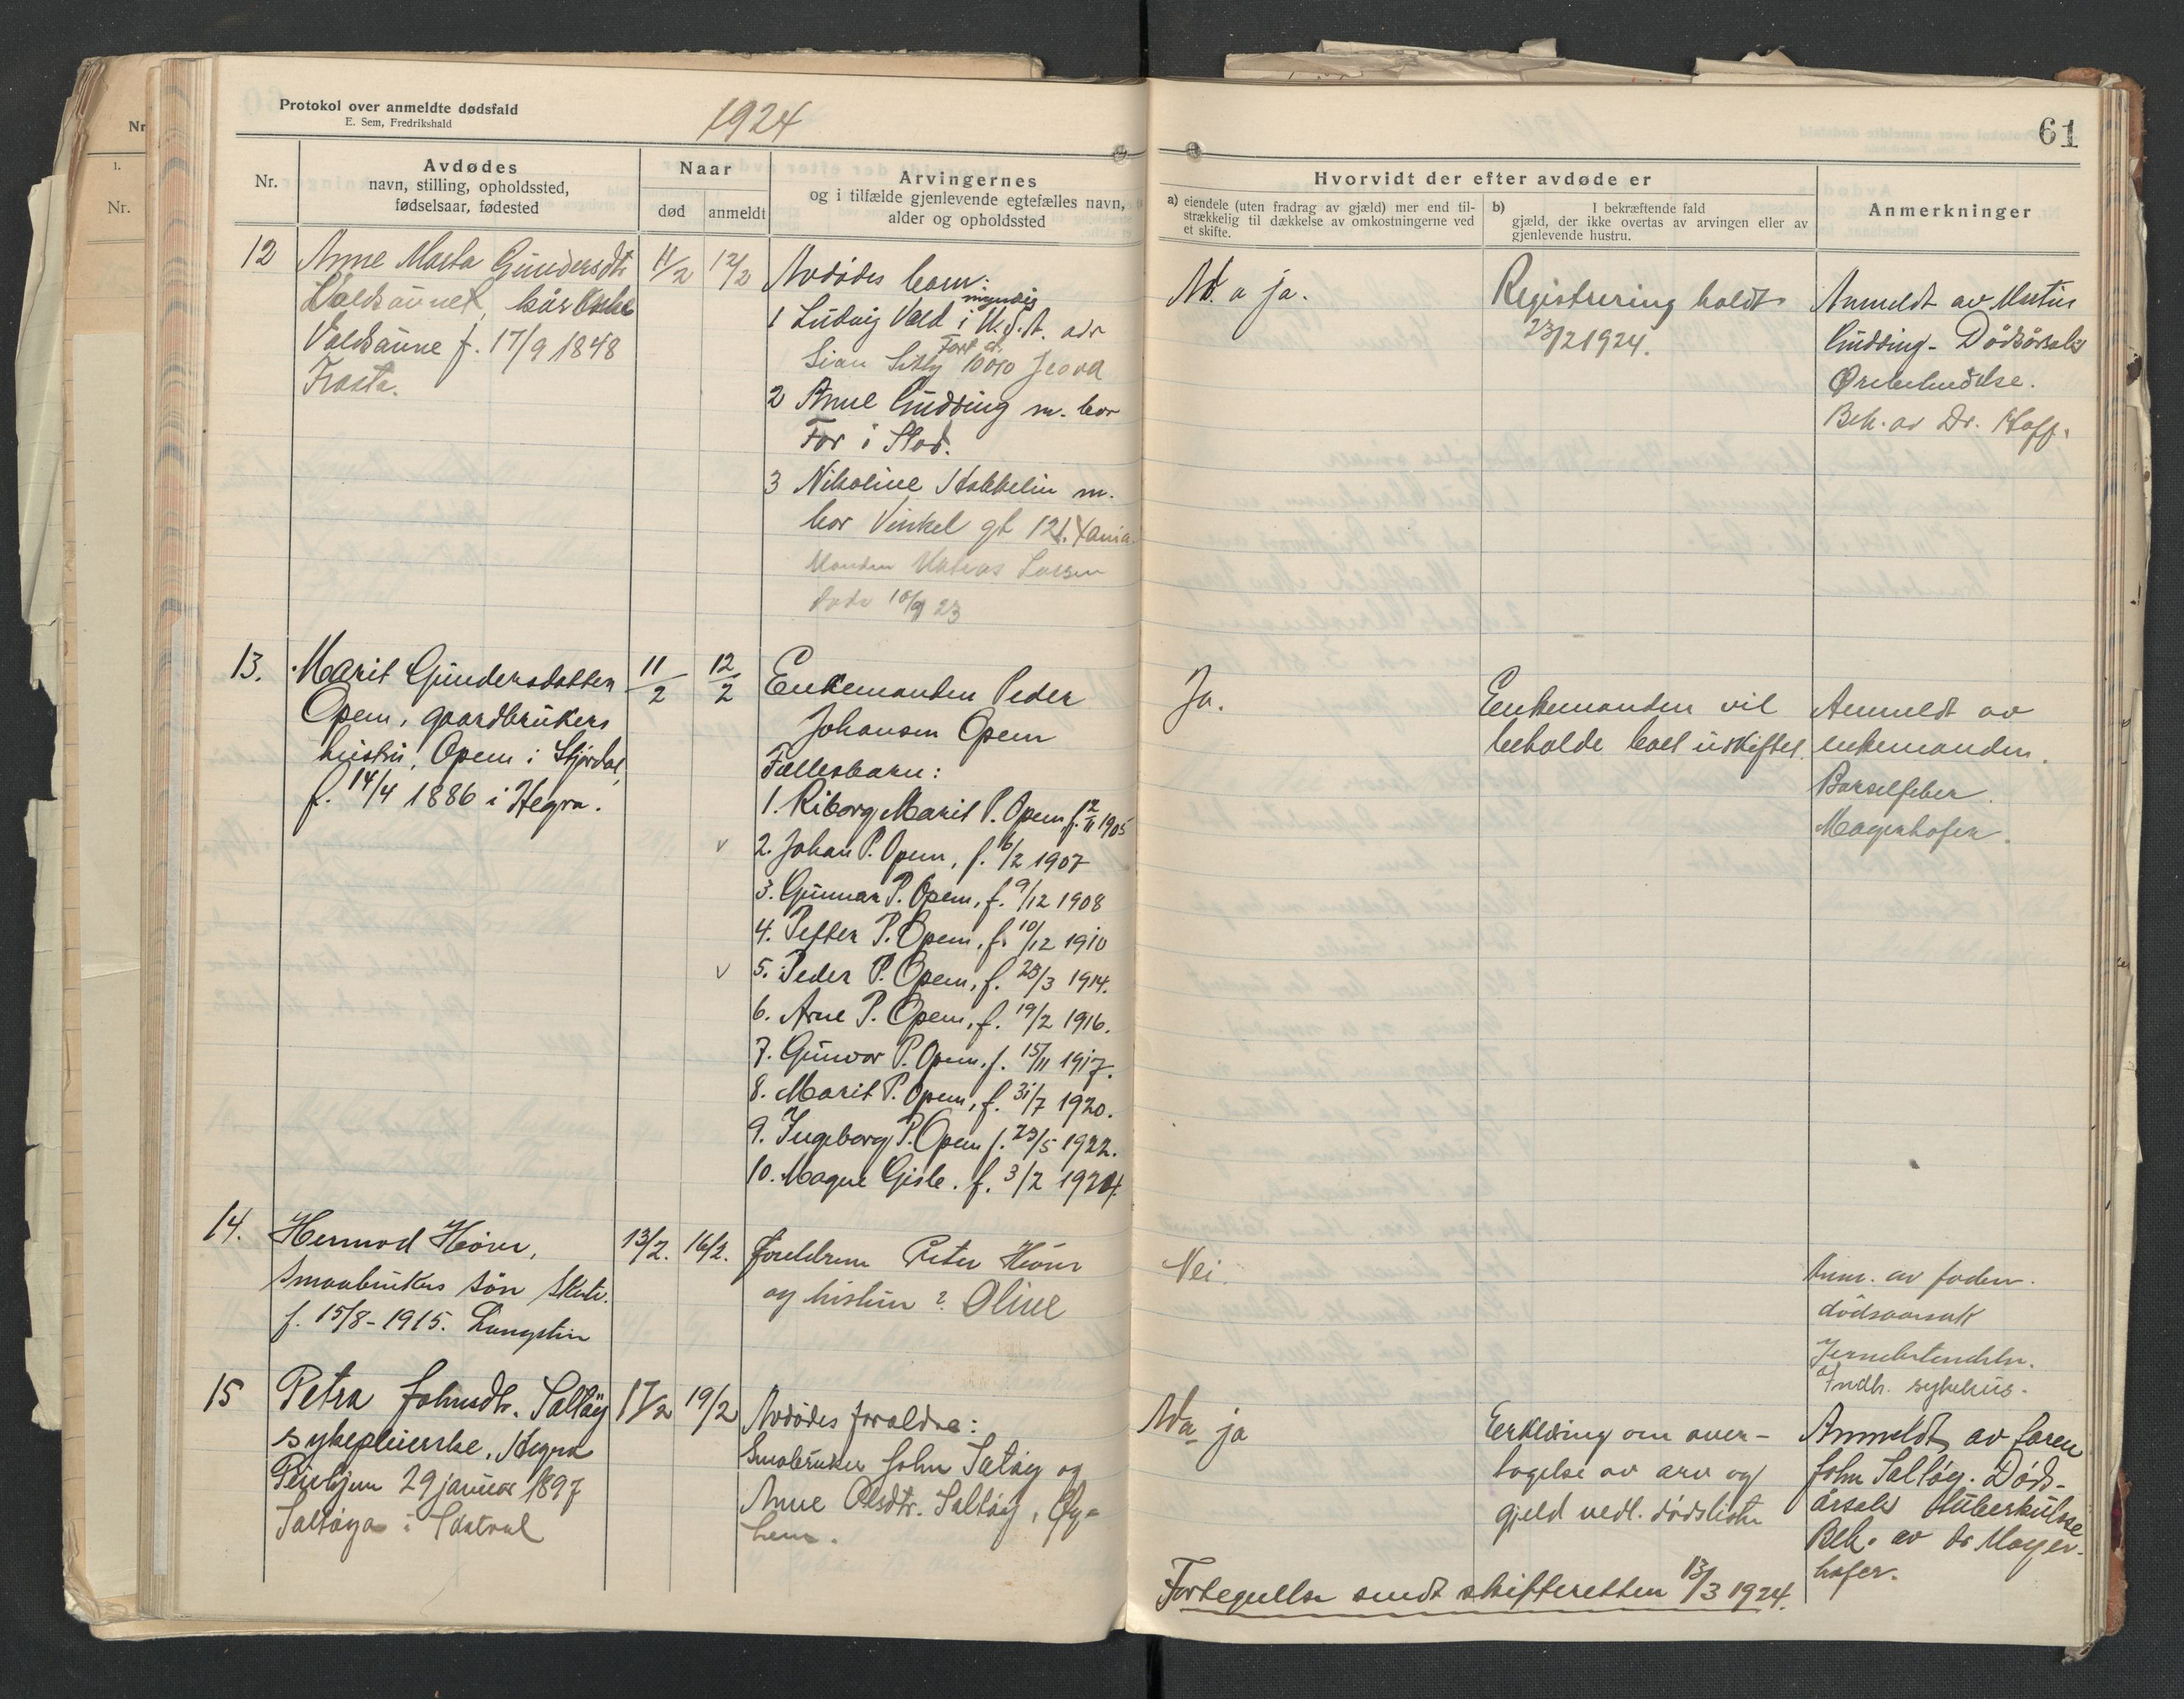 Protokol over anmeldte dødsfald
E. Sem, Fredrikshald
1924
Nr.
Avdødes
navn, stilling, opholdssted,
fødselsaar, fødested
Naar
død
anmeldt
Arvingernes
og i tilfælde gjenlevende egtefælles navn,
alder og opholdssted
12
Anne Marta Gundersdtr
Valdsaunet, kårenke
Valdsaune f. 17/9 1848
Frosta.
11/2
12/2
Avdødes barn:
1 Ludvig Vold myndig i U.S.A. adr
Fort st.
2 Anne Gudding m. bor
For i Stod.
3 Nikoline Stabbelin m.
bor Vinkel gt 12
Manden Larsen
døde 10/9 23
13.
Marit Gundersdatter
Opem, gaardbrukers
hustru, Opem i Stjørdal,
f. 14/4 1886 i Hegra.
11/2
12/2
Enkemanden Peder
Johansen Opem
Fællesbarn:
1. Riborg Marit P. Opem f. 12/11 1905
v 2. Johan P. Opem, f. 6/2 1907
3. Gunnar P. Opem, f. 9/12 1908
4. Petter P. Opem, f. 10/12 1910
v 5. Peder P. Opem, f. 23/3 1914.
6. Arne P. Opem, f. 19/2 1916.
7. Gunvor P. Opem, f. 15/11 1917.
8. Marit P. Opem, f. 31/7 1920.
9. Ingeborg P. Opem f. 23/5 1922.
10. Magne Gisle. f. 3/2 1924.
14.
Hermod
smaabrukers søn
f. 15/8-1915.
13/2.
16/2.
foreldrene Peter
og hustru ? Oline
15
Petra Johnsdtr. Saltøy
sykepleierske, Hegra
29 januar 1897
Saltøya i
17/2
19/2
Avdødes foraldre:
Smabruker John Saltøy og
Anne Olsdtr. Saltøy,
61
Hvorvidt der efter avdøde er
a) eiendele (uten fradrag av gjæld) mer end til-
strækkelig til dækkelse av omkostningerne ved
et skifte.
b) I bekræftende fald
gjæld, der ikke overtas av arvingen eller av
gjenlevende hustru.
Anmerkninger
Ad. a ja.
Registrering holdt
23/2 1924.
Anmeldt av
Gudding. Dødsårsak
Ørebetendelse.
Beh. av Dr. Hoff.
Ja.
Enkemanden vil
beholde boet uskiftet.
Anmeldt av
enkemanden.
Barselfeber.
Mayerhofer.
Nei.
Anm. av faderen.
dødsaarsak
Indh. sykehus.
Ad a ja
Erklæring om over-
tagelse av arv og
gjeld vedl. dødslisten
Anmeldt av faren
John Saltøy. Døds-
årsak tuberkulose
Beh. av dr Mayer-
hofer.
Fortegnelse sendt skifteretten 13/3 1924.